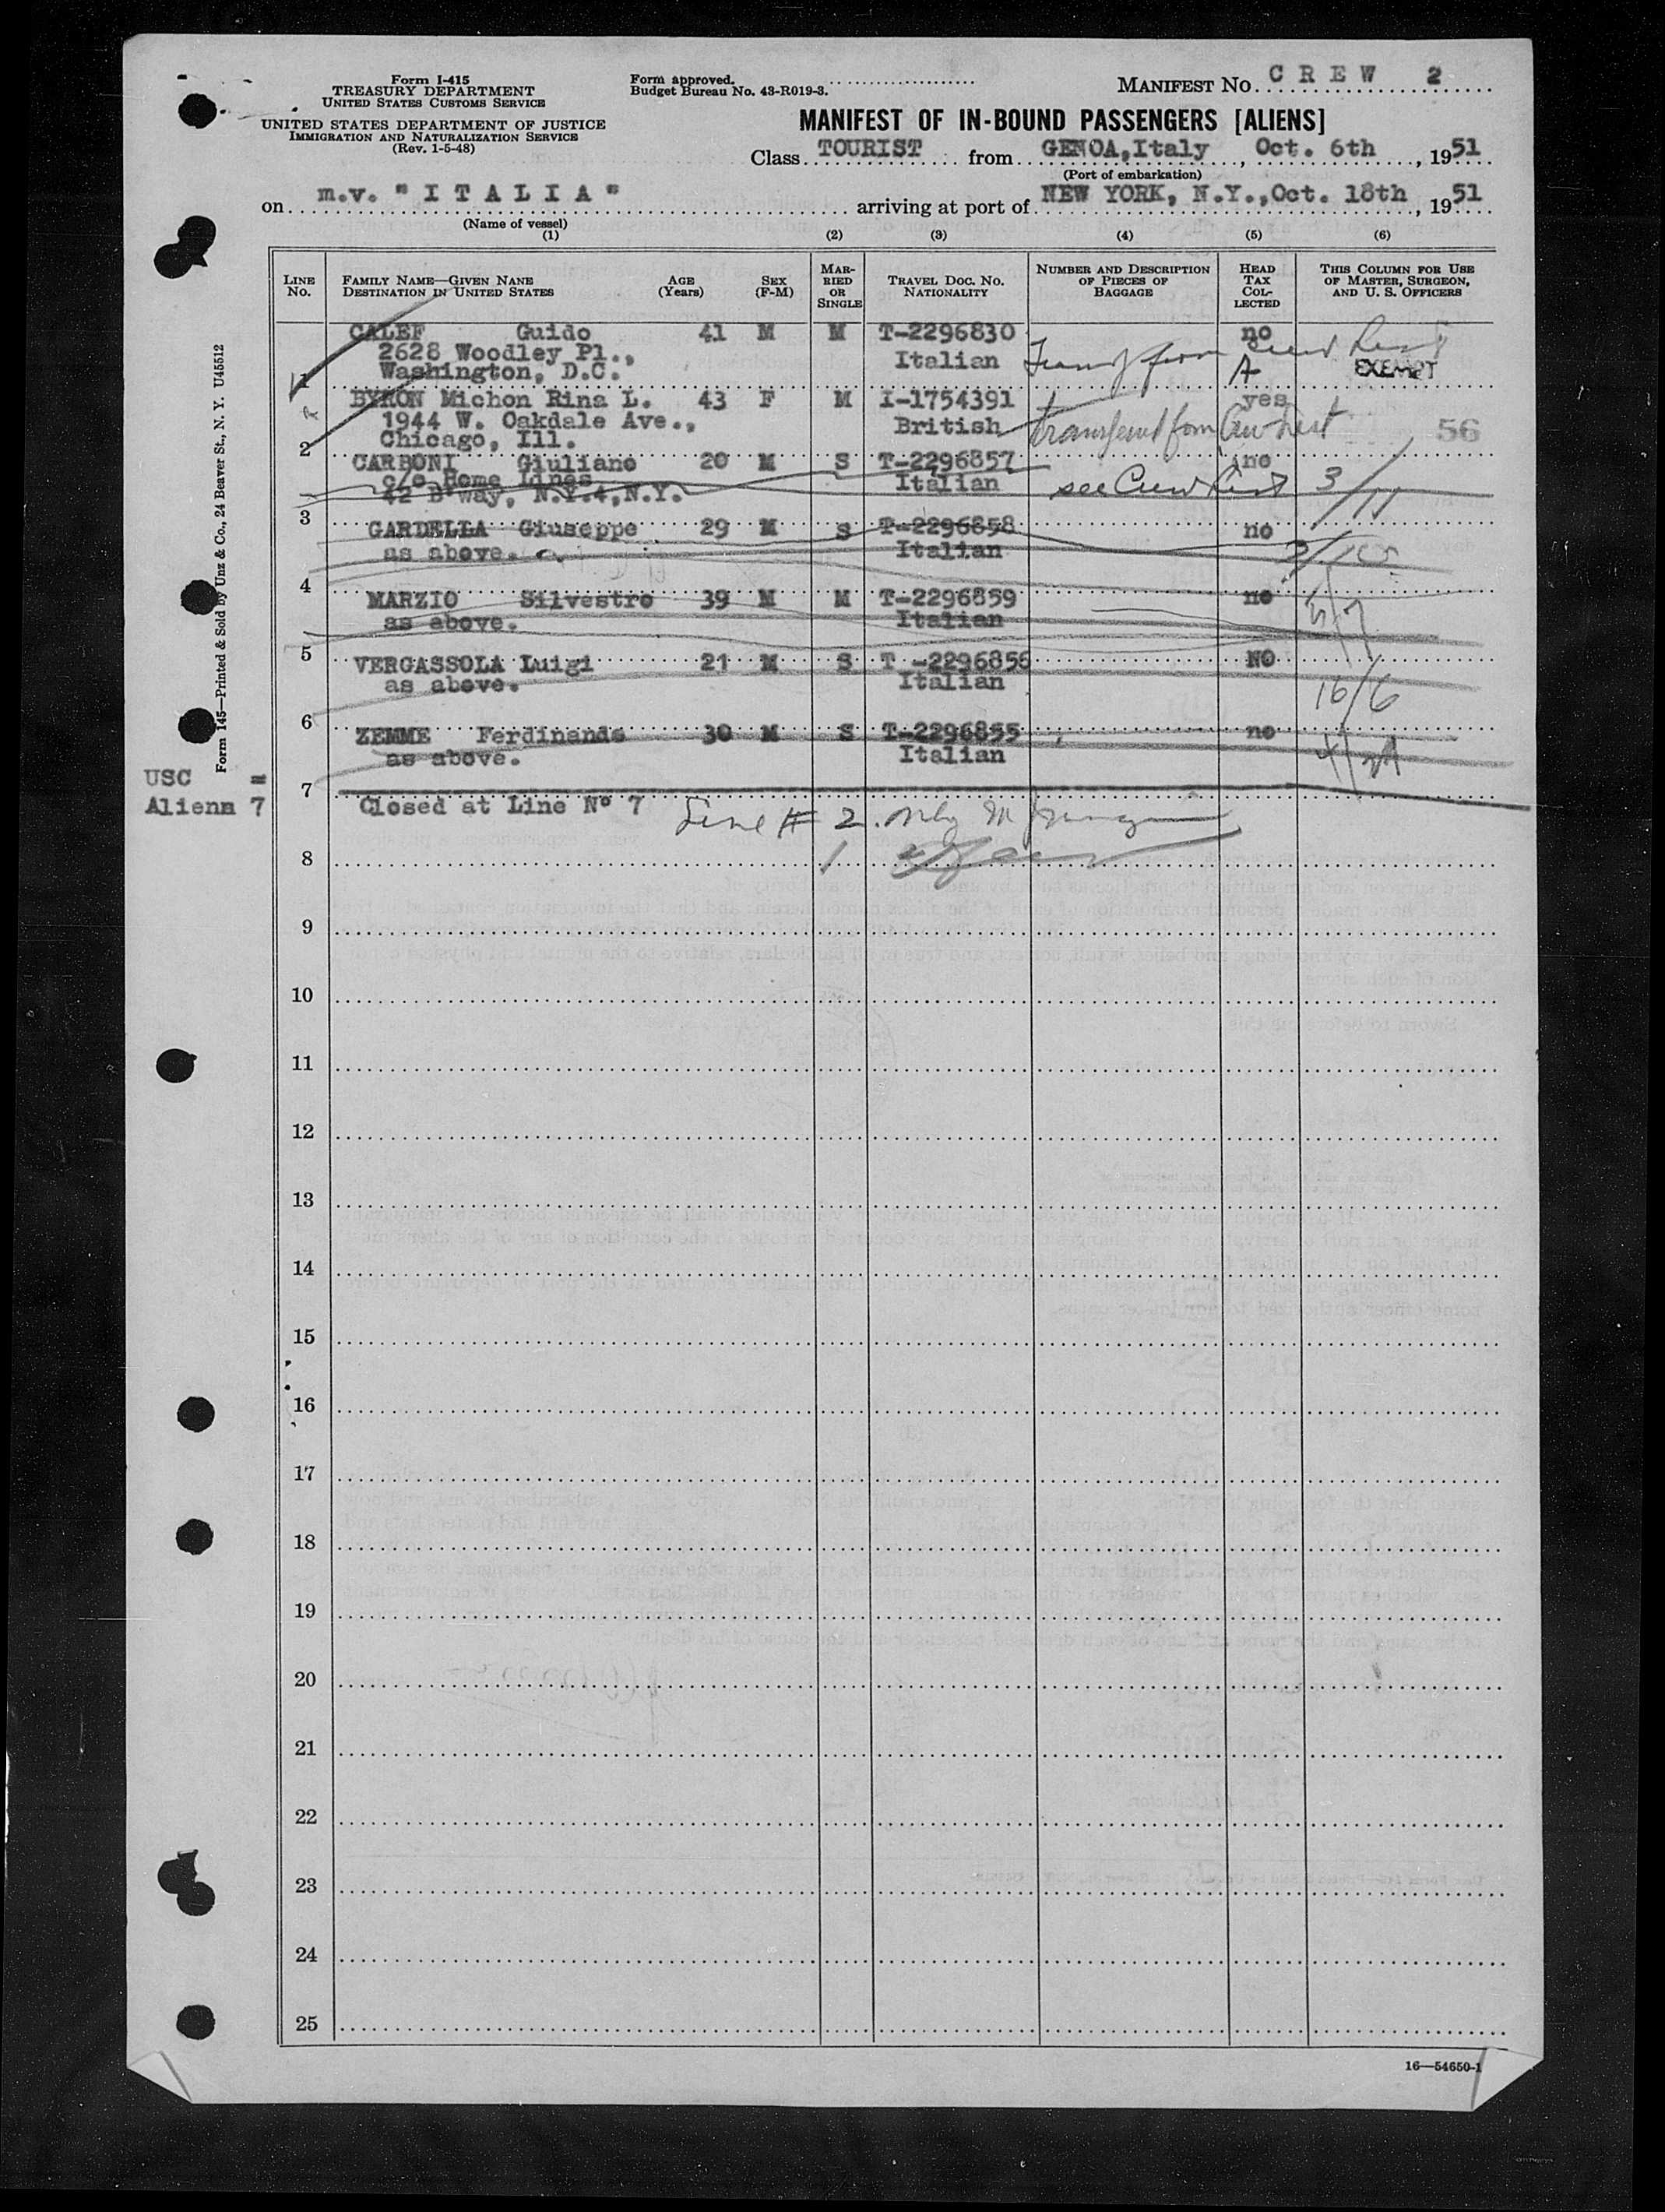 Form I-415
TREASURY DEPARTMENT
UNITED STATES CUSTOMS SERVICE
UNITED STATES DEPARTMENT OF JUSTICE
IMMIGRATION AND NATURALIZATION SERVICE
(Rev. 1-5-48)
Form approved.
Budget Bureau No. 43-R019-3.
MANIFEST NO. CREW 2
MANIFEST OF IN-BOUND PASSENGERS [ALIENS]
Class TOURIST from GENOA, Italy, Oct. 6th, 1951
(Port of embarkation)
on m.v. "ITALIA" arriving at port of NEW YORK, N.Y., Oct. 18th, 1951
(Name of vessel)
(1) (2) (3) (4) (5) (6)
LINE NO. FAMILY NAME—GIVEN NAME DESTINATION IN UNITED STATES AGE (Years) SEX (F-M) MARRIED OR SINGLE TRAVEL DOC. NO. NATIONALITY NUMBER AND DESCRIPTION OF PIECES OF BAGGAGE HEAD TAX COLLECTED THIS COLUMN FOR USE OF MASTER, SURGEON, AND U. S. OFFICERS
CALEF Guido 41 M M T-2296830 no
2628 Woodley Pl., Italian from
Washington, D.C. A EXEMPT
1
BYRON Michon Rina L. 43 F M I-1754391 yes
1944 W. Oakdale Ave., British transferred from Crew List 56
Chicago, Ill.
2
CARBONI Giuliano 20 M S T-2296857 no
c/o Home Lines Italian see Crew List 3/11
42 B'way, N.Y.4, N.Y.
3
GARDELLA Giuseppe 29 M S T-2296858 no
as above. Italian
4
MARZIO Silvestro 39 M M T-2296859 no
as above. Italian
5
VERGASSOLA Luigi 21 M S T -2296856 NO
as above. Italian 16/6
6
ZEMME Ferdinando 30 M S T-2296855 no
as above. Italian
7
USC =
Aliens 7
Closed at Line Nº 7 Line # 2. only
8
9
10
11
12
13
14
15
16
17
18
19
20
21
22
23
24
25
16—54650-1
Form 145—Printed & Sold by Unz & Co., 24 Beaver St., N. Y. U45512